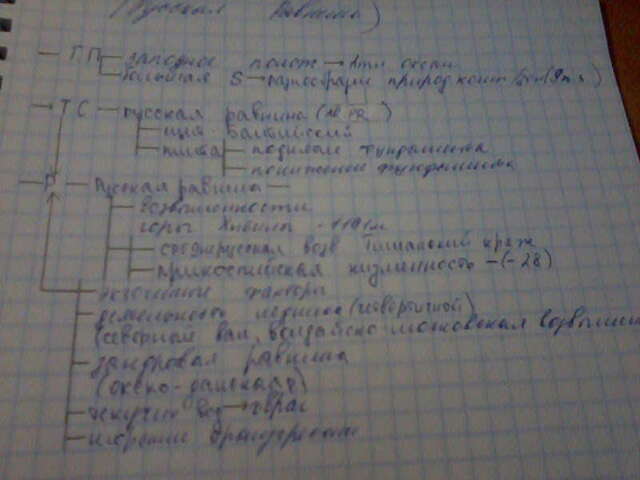 Русская Равнина)
— ГП — западное полож → Атл. океан
большая S → разнообразие природ комп
→ ТС — русская равнина (AR PR)
щит Балтийский
плита — поднятие фундамента
понижение фундамента
— Р — Русская равнина —
возвышенности
горы Хибины - 1191м
среднерусская возв Тиманский кряж
прикаспийская низменность — (-28)
экзогенные факторы
деятельность ледника (четвертичной)
(северной вал, валдайско-московская возвышен
зандровая равнина
(окско-донская)
текучих вод → овраг